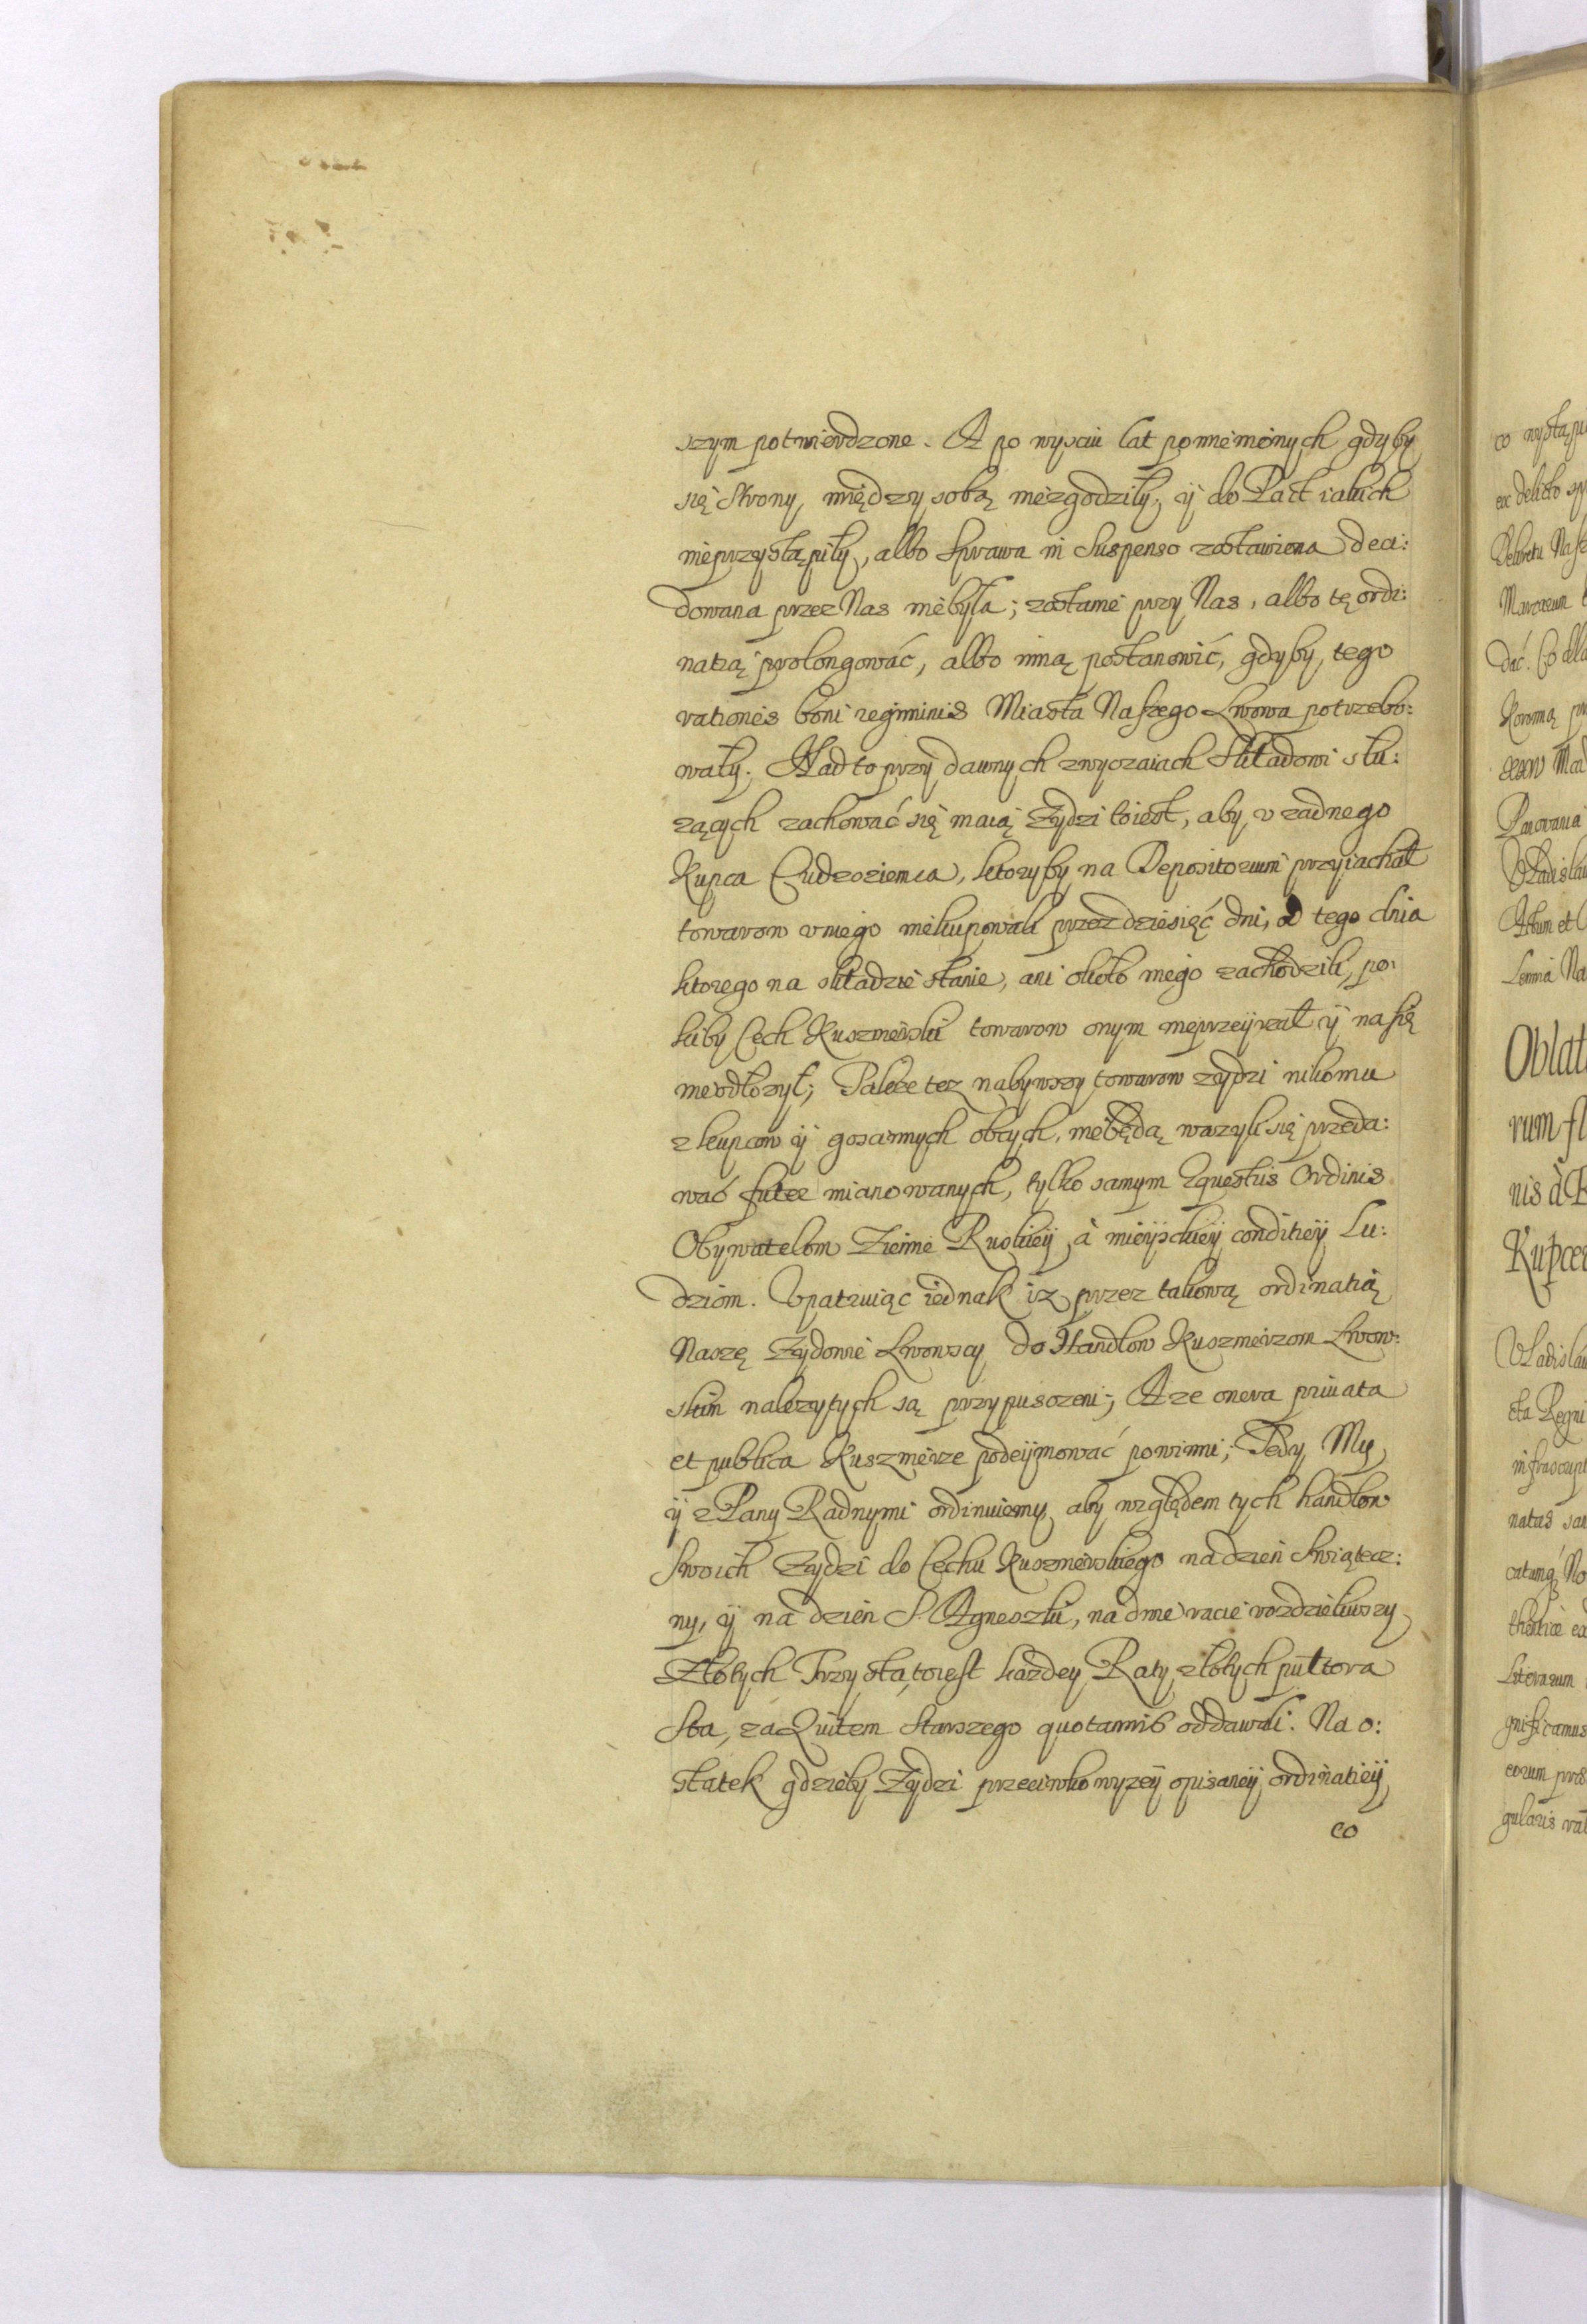 szym potwierdzone. A po wysciu lat pomienionych gdyby
się Strony, między sobą niezgodziły, ÿ do Pact iakich
nieprzystąpiły, albo Sprawa in Suspenso zostawiona deci:
dowana przez Nas niebyła; zostanie przy Nas, albo tę ordi:
natią prolongować, albo inną postanowić, gdyby, tego
rationes boni regiminis Miasta Naszego Lwowa potrzebo:
wały. Nad to przy dawnych zwyczaiach Składowi słu:
zących zachować się maią Zydzi toiest, aby v zadnego
Kupca Cudzoziemca, ktoryby na Depositorium przyiachał
towarow v niego niekupowali przez dziesięć dni, od tego dnia
ktorego na składzie stanie, ani około niego zachodzili, po:
kiby Cech Kusznierski towarow onym nieprzeÿrzał ÿ na się
nieodłozył; Także tez nabywszy towarow zydzi nikomu
z kupcow ÿ goscinnych obcych, niebędą wazyli się przeda:
wać futer mianowanych, tylko samym Equestris Ordinis
Obywatelom Ziemie Ruskieÿ, à mieÿskieÿ conditieÿ Lu:
dziom. Vpatruiąc iednak iz przez takową ordinatią
Naszę Zydowie Lwowscy do Handlow Kusznierzom Lwow:
skim nalezytych są przypuszczeni; A ze onera priuata
et publica Kusznierze podeÿmować powinni; Tedy My
ÿ z Pany Radnymi ordinuiemy, aby względem tych handlow
Swoich Zydzi do Cechu Kusznierskiego na dzień Swiątecz:
ny, ÿ na dzień S Agneszki, na dwie racie rozdzieliwszy
Złotych Trzysta, toiest kazdey Raty złotych pułtora
Sta, zà Quitem Starszego quotannis oddawali. Na o:
statek gdzieby Zydzi przeciwko wyzeÿ opisaneÿ ordinatieÿ
co